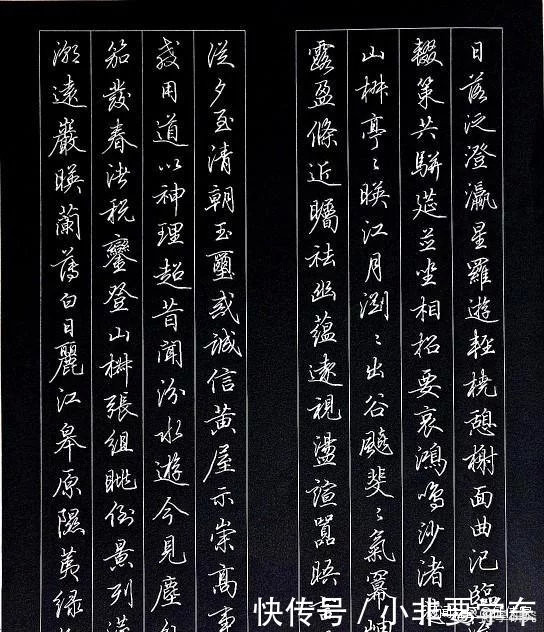 日落泛澄瀛星羅遊輕橈憩榭面曲汜臨
輟策共駢筵並坐相招要哀鴻鳴沙渚
山椒亭〻暎江月瀏〻出谷飈斐〻氣冪岫
露盈條近矚祛幽蘊遠視盪諠囂晤
從夕至清朝玉璽戒誠信黃屋示崇高事
教用道以神理超昔聞汾水遊今見塵外
笳發春渚稅鑾登山椒張組眺倒景列筵
潮遠巖暎蘭薄白日麗江皋原隰荑綠
快传号 / 小非要学车